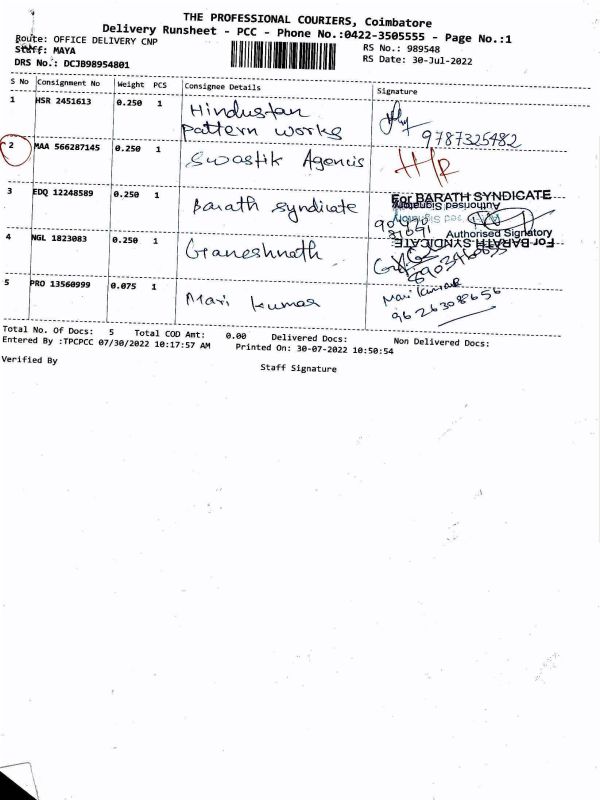 THE PROFESSIONAL COURIERS, Coimbatore
Delivery Runsheet - PCC - Phone No.:0422-3505555 - Page No.:1
Route: OFFICE DELIVERY CNP
RS No.: 989548
Staff: MAYA
RS Date: 30-Jul-2022
DRS No.: DCJB98954801
S No Consignment No Weight PCS Consignee Details Signature
1 HSR 2451613 0.250 1 Hindustan
pattern works 9787325482
2 MAA 566287145 0.250 1 Swastik Agencis
3 EDQ 12248589 0.250 1 Barath syndicate
For BARATH SYNDICATE
Authorised Signatory
Authorised Signatory
For BARATH SYNDICATE
4 NGL 1823083 0.250 1 Ganeshnath
5 PRO 13560999 0.075 1 Mari kumar
Mari kumar
9626308656
Total No. Of Docs: 5 Total COD Amt: 0.00 Delivered Docs: Non Delivered Docs:
Entered By :TPCPCC 07/30/2022 10:17:57 AM Printed On: 30-07-2022 10:50:54
Verified By
Staff Signature